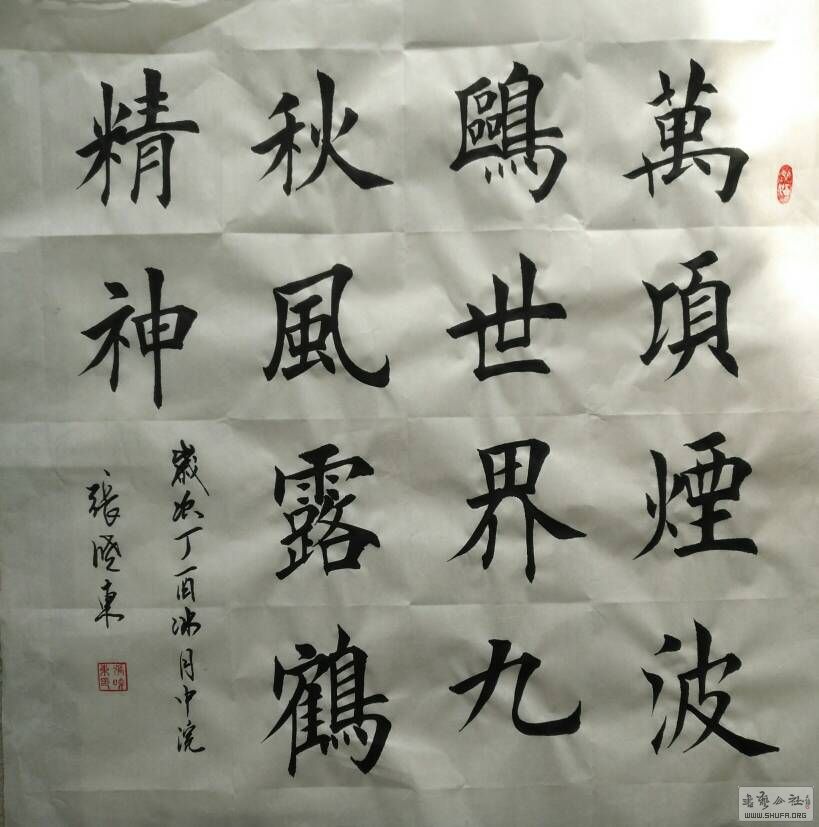 萬頃煙波
鷗世界九
秋風露鶴
精神
歲次丁酉冰月中浣
張曉東
書藝公社
WWW.SHUFA.ORG